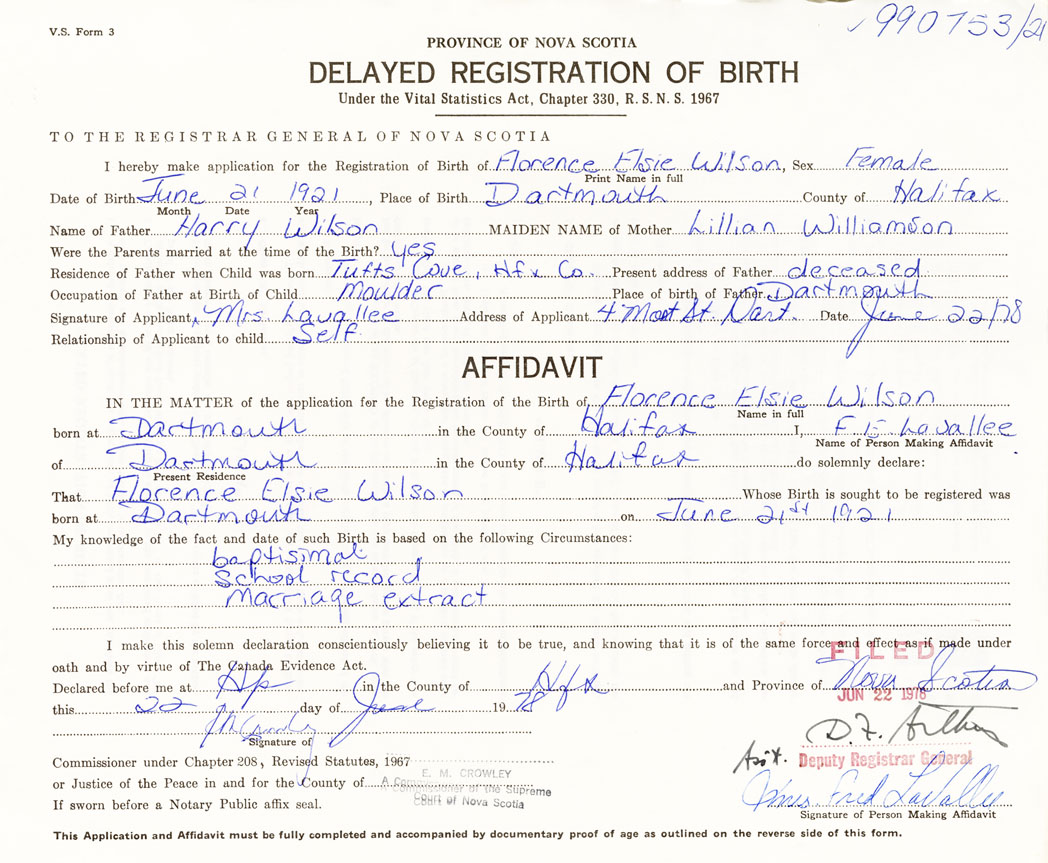 V.S. Form 3
990753/21
PROVINCE OF NOVA SCOTIA
DELAYED REGISTRATION OF BIRTH
Under the Vital Statistics Act, Chapter 330, R. S. N. S. 1967
TO THE REGISTRAR GENERAL OF NOVA SCOTIA
I hereby make application for the Registration of Birth of Florence Elsie Wilson, Sex Female
Print Name in full
Date of Birth June 21 1921, Place of Birth Dartmouth County of Halifax
Month Date Year
Name of Father Harry Wilson MAIDEN NAME of Mother Lillian Williamson
Were the Parents married at the time of the Birth? yes
Residence of Father when Child was born Tufts Cove, Hfx Co. Present address of Father deceased
Occupation of Father at Birth of Child Moulder Place of birth of Father Dartmouth
Signature of Applicant Mrs. Lavallee Address of Applicant 4 St. Dart. Date June 22/78
Relationship of Applicant to child Self
AFFIDAVIT
IN THE MATTER of the application for the Registration of the Birth of Florence Elsie Wilson
Name in full
born at Dartmouth in the County of Halifax I, F E Lavallee
Name of Person Making Affidavit
of Dartmouth in the County of Halifax do solemnly declare:
Present Residence
That Florence Elsie Wilson Whose Birth is sought to be registered was
born at Dartmouth on June 21st 1921
My knowledge of the fact and date of such Birth is based on the following Circumstances:
baptisimal
School record
Marriage extract
I make this solemn declaration conscientiously believing it to be true, and knowing that it is of the same force and effect as if made under
FILED
oath and by virtue of The Canada Evidence Act.
Declared before me at in the County of Hfx and Province of Nova Scotia
JUN 22 1978
this 22 day of June 1978
Signature of
D. F. Arthur
Commissioner under Chapter 208, Revised Statutes, 1967
Ass't. Deputy Registrar General
or Justice of the Peace in and for the County of
E. M. CROWLEY
A Commissioner of the Supreme
Court of Nova Scotia
Mrs. Fred LaVallee
If sworn before a Notary Public affix seal.
Signature of Person Making Affidavit
This Application and Affidavit must be fully completed and accompanied by documentary proof of age as outlined on the reverse side of this form.